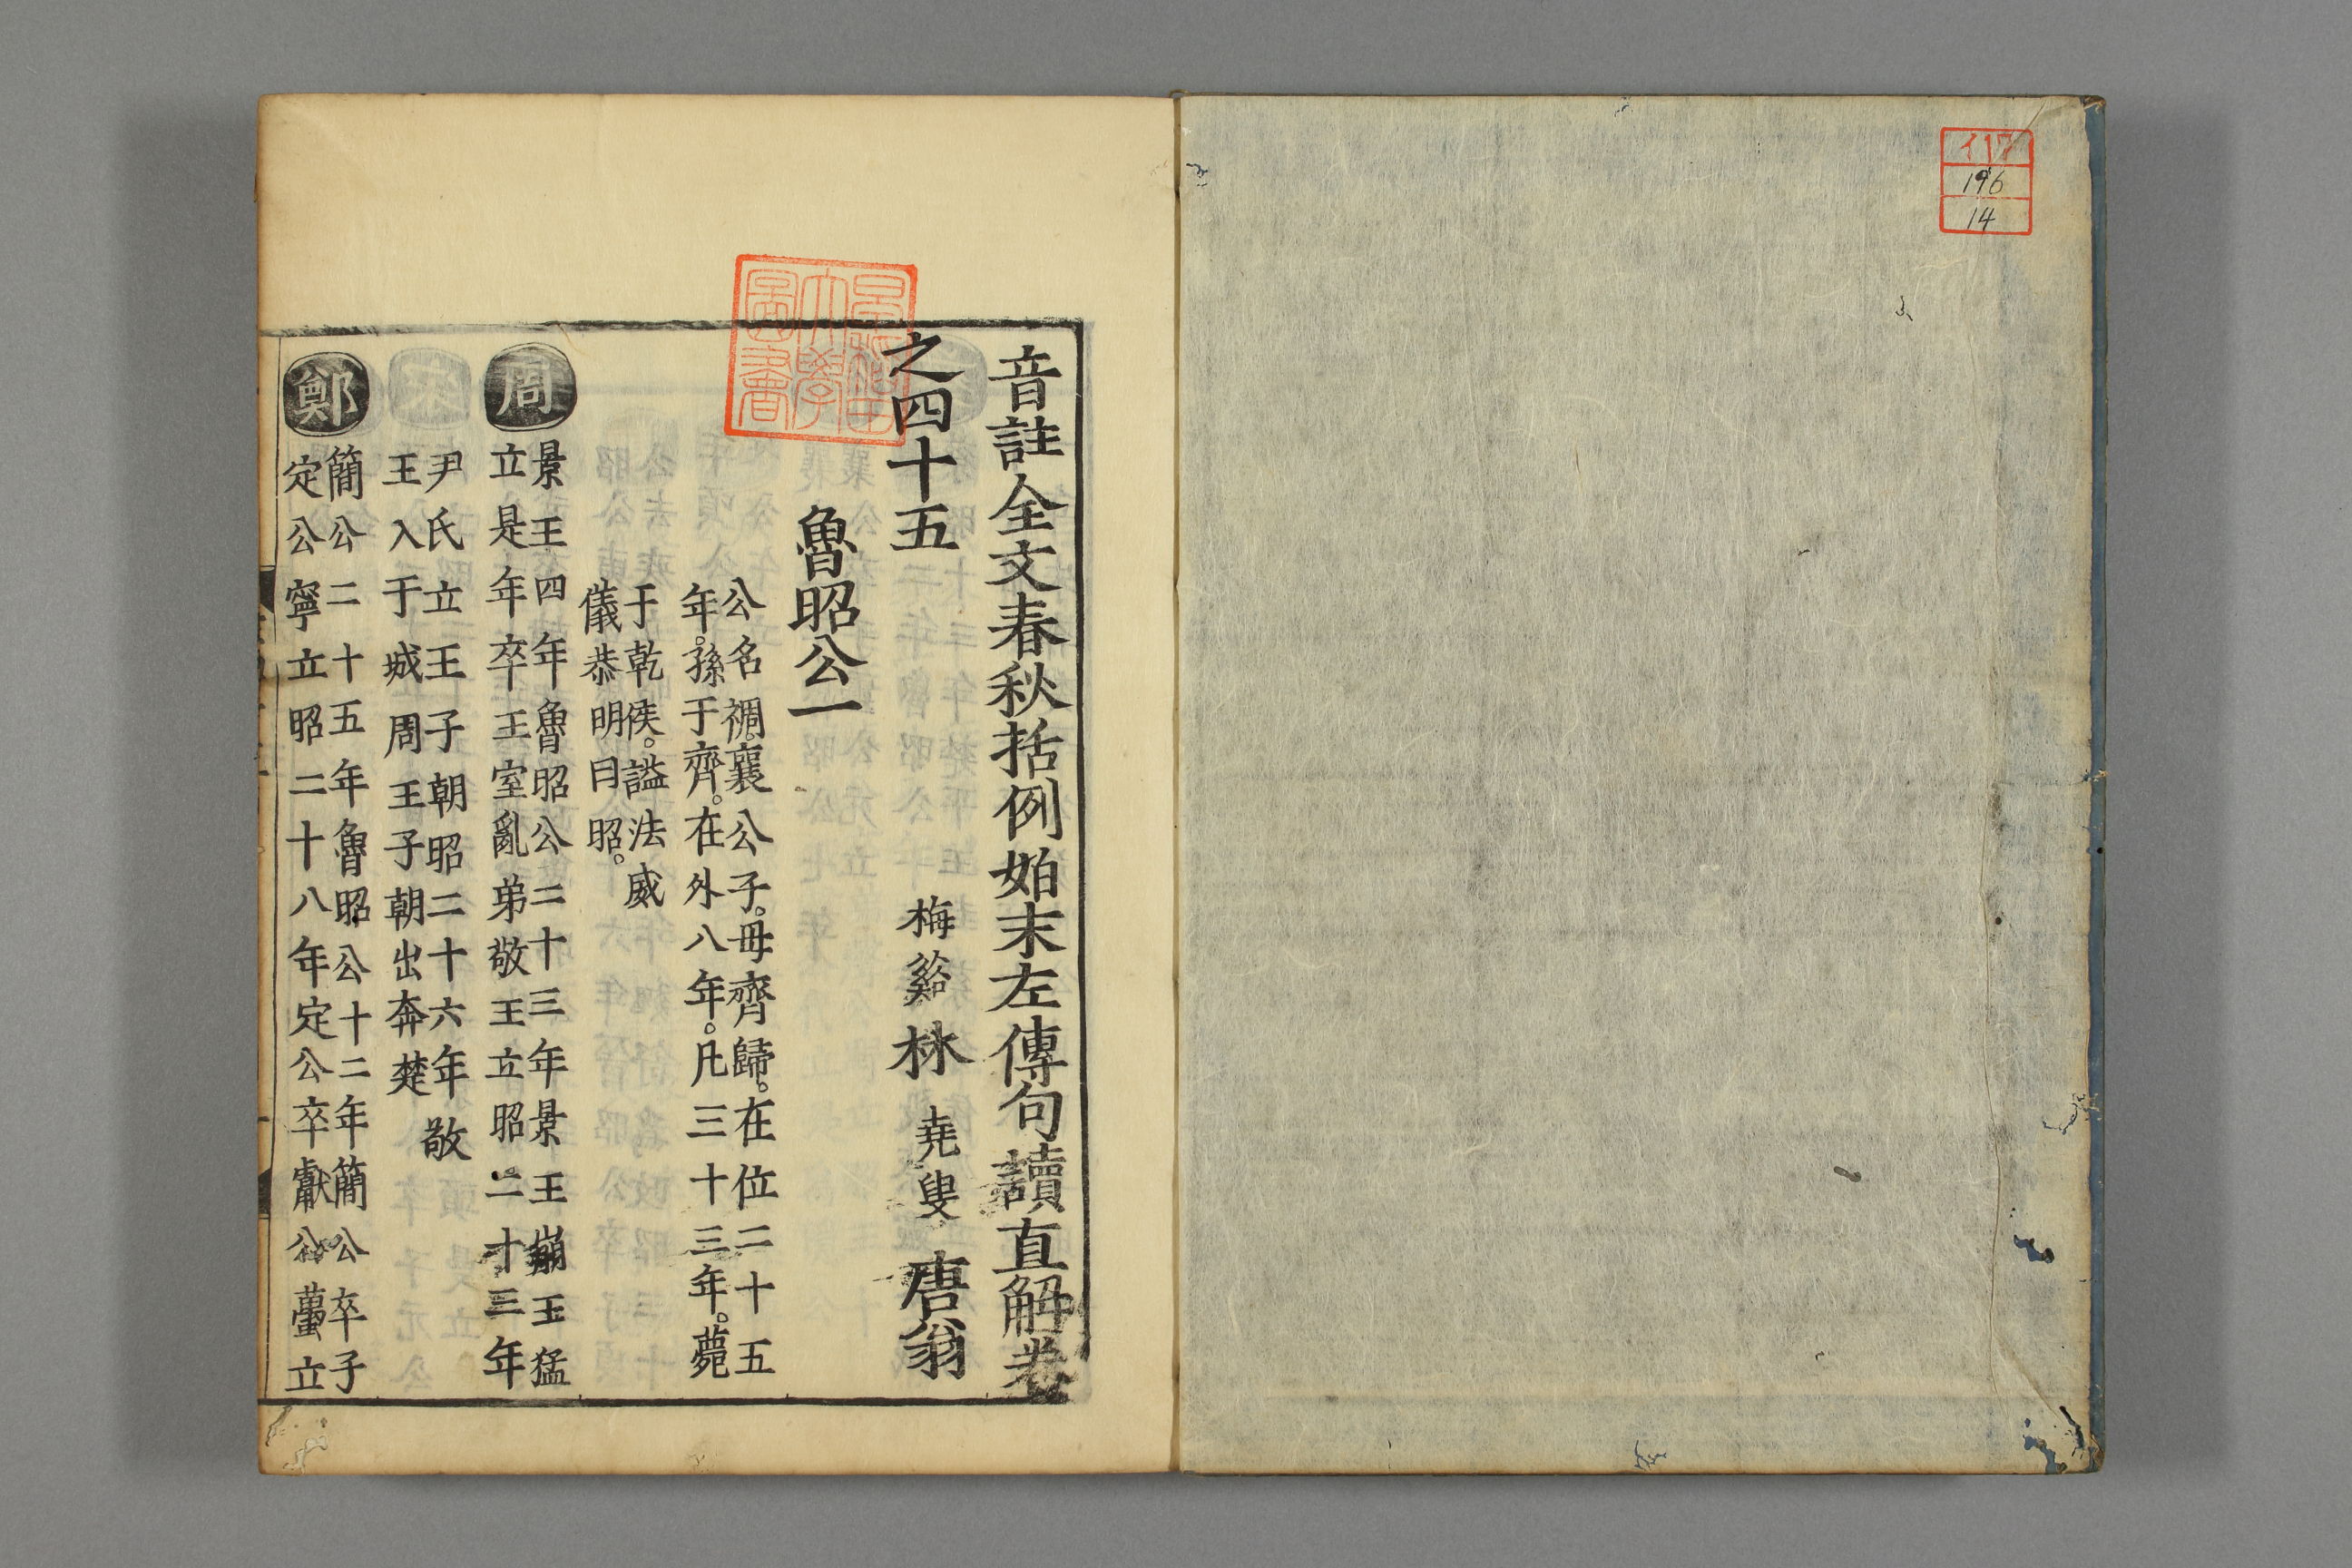 イ17
196
14
音註全文春秋括例始末左傳句讀直解卷
之四十五
梅谿林 堯叟 唐翁
魯昭公一
公名裯。襄公子。毋齊歸。在位二十五
年。孫于齊。在外八年。凡三十三年。薨
于乾侯。謚法威
儀恭明曰昭。
周
景王四年魯昭公二十三年景王崩王猛
立是年卒王室亂弟敬王立昭二十三年
尹氏立王子朝昭二十六年敬
王入于城周王子朝出奔楚
鄭
簡公二十五年魯昭公十二年簡公卒子
定公寧立昭二十八年定公卒獻公蠆立